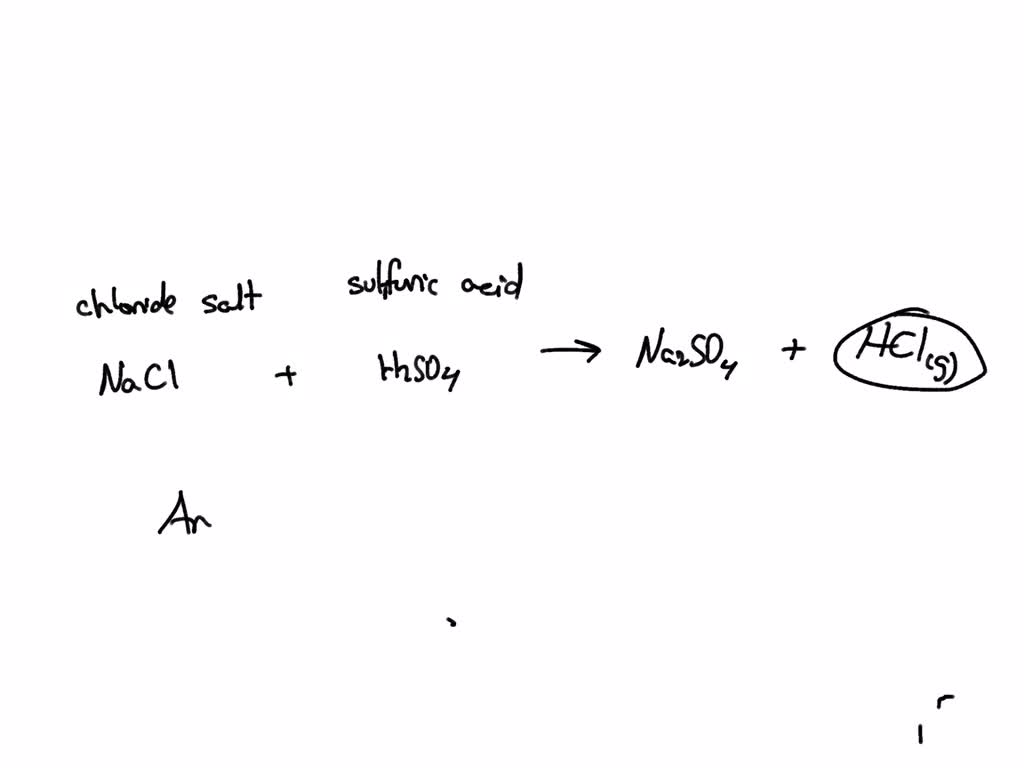 chloride salt sulfuric acid
NaCl + H₂SO₄ → Na₂SO₄ + HCl(g)
An